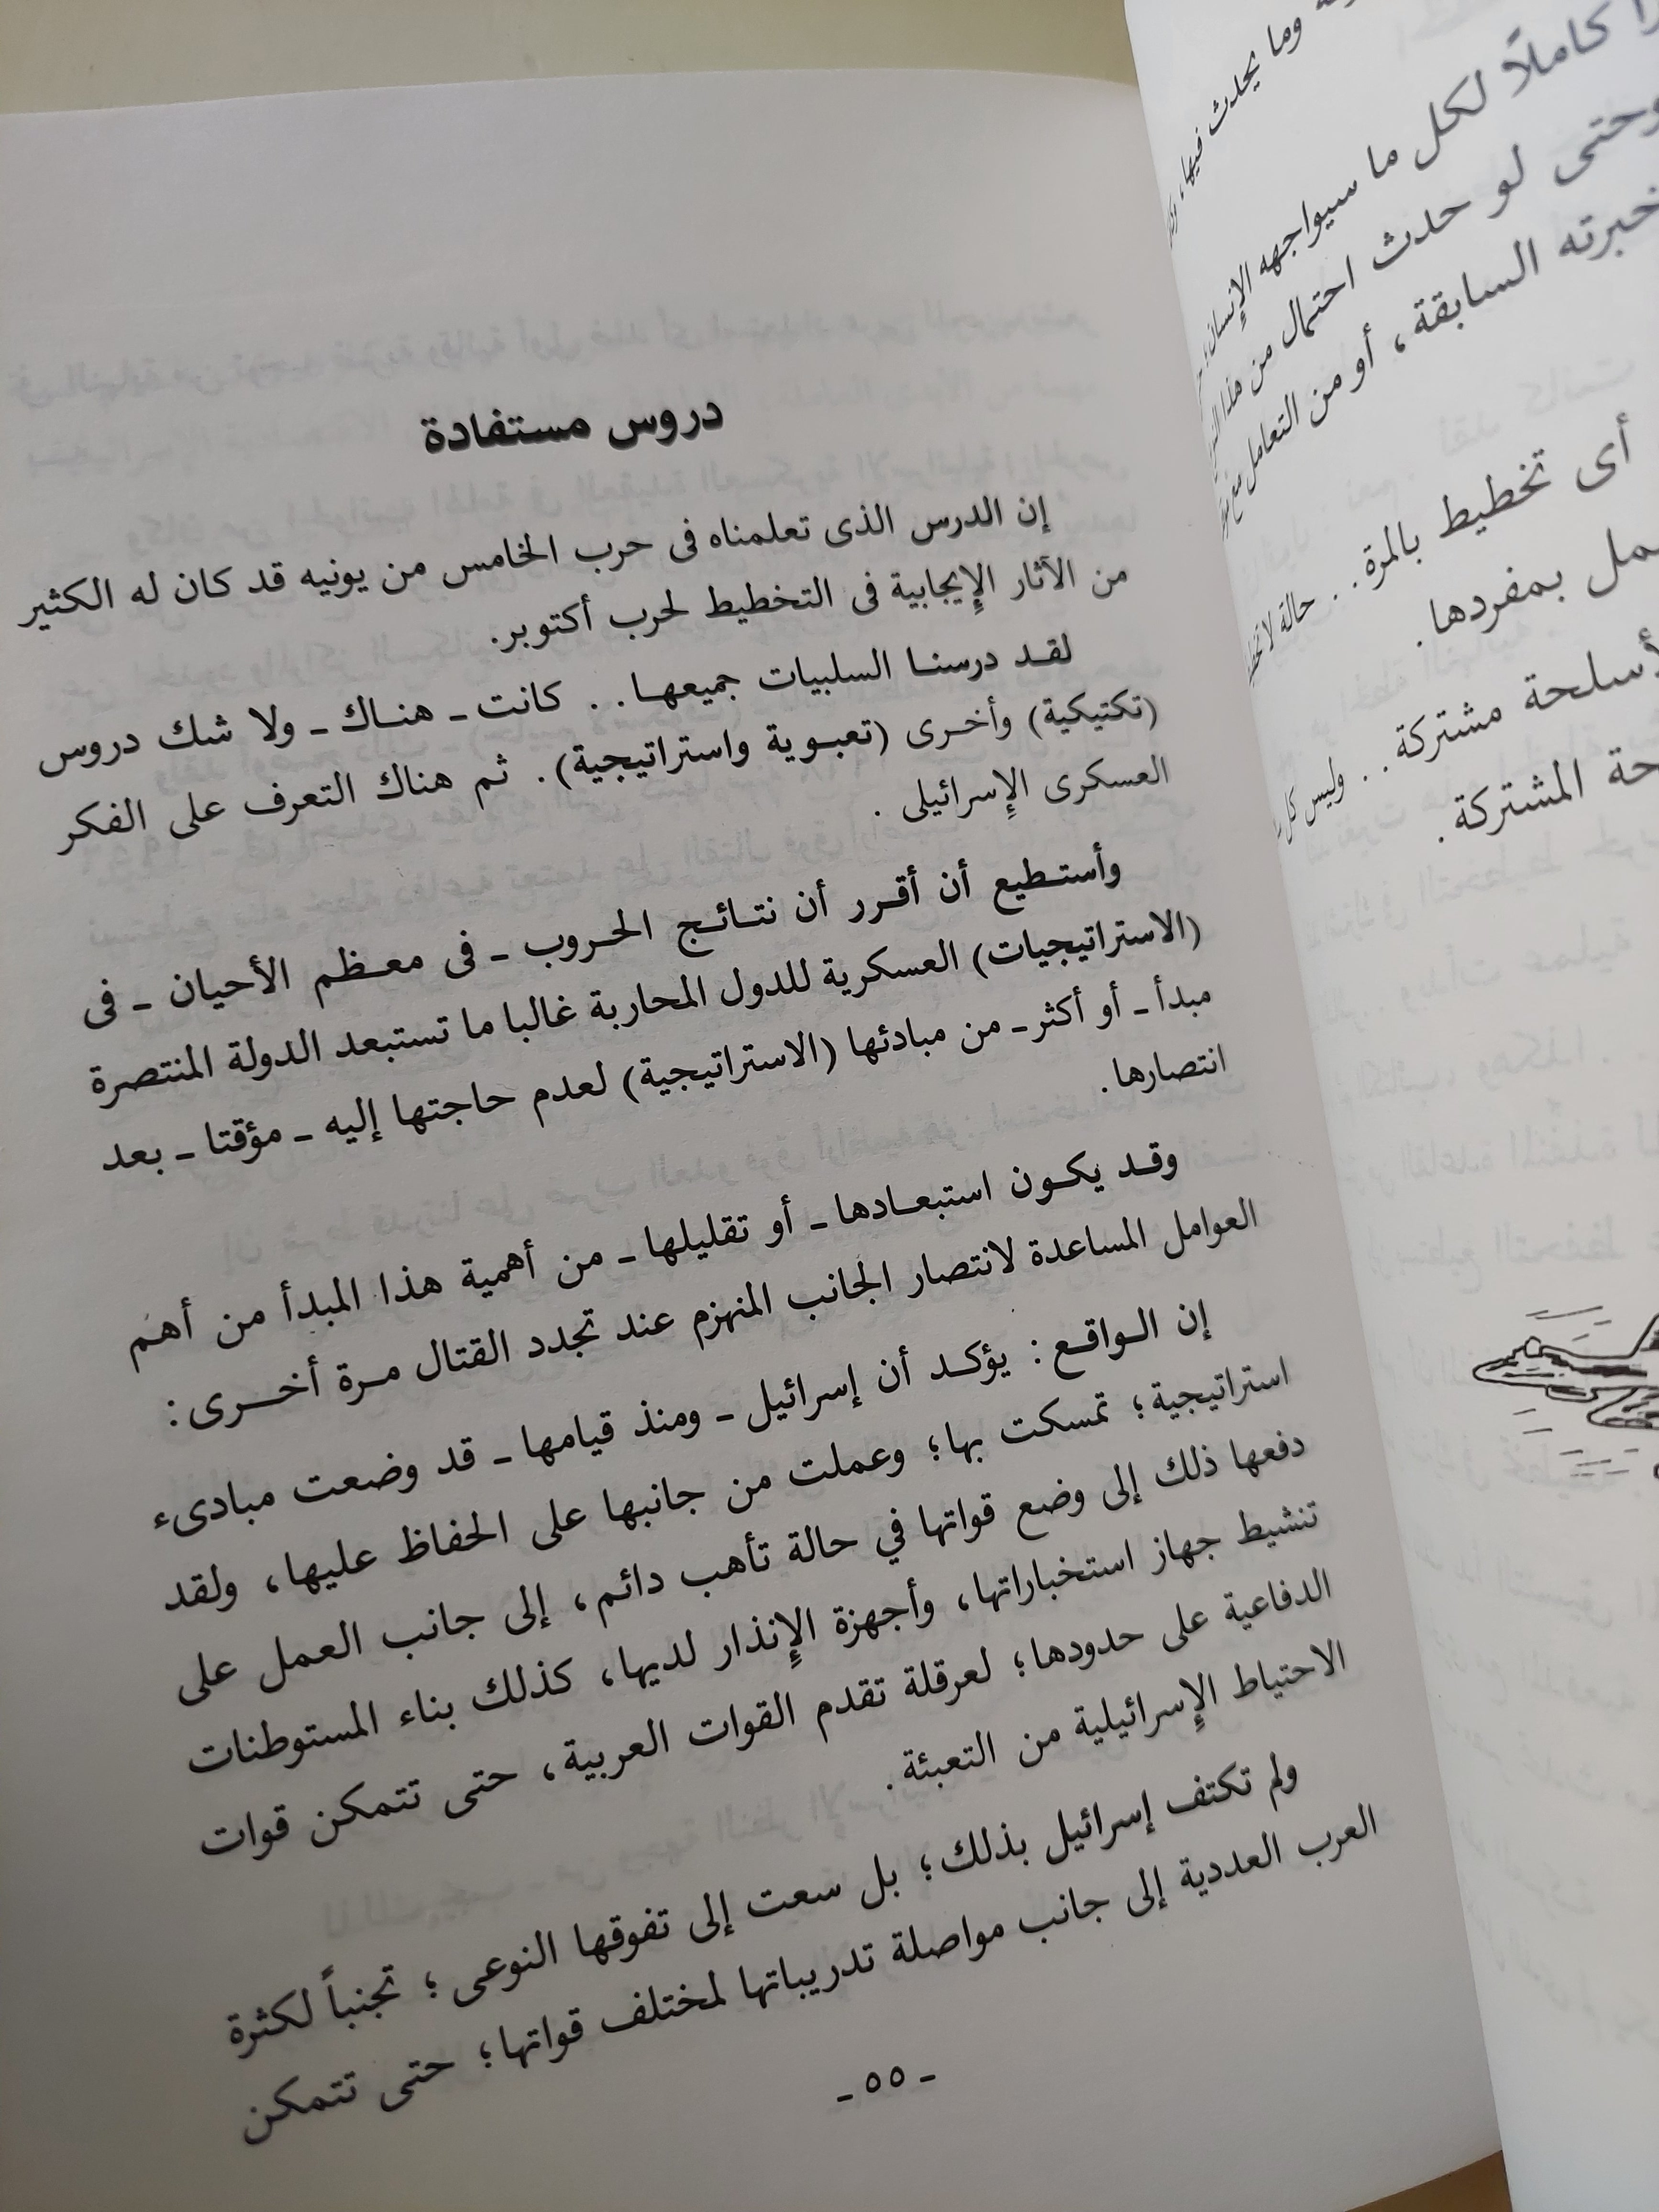 دروس مستفادة
إن الدرس الذى تعلمناه فى حرب الخامس من يونيه قد كان له الكثير
من الآثار الإيجابية فى التخطيط لحرب أكتوبر.
لقد درسنا السلبيات جميعها.. كانت ـ هناك ـ ولا شك دروس
(تكتيكية) وأخرى (تعبوية واستراتيجية). ثم هناك التعرف على الفكر
العسكرى الإسرائيلى .
وأستطيع أن أقرر أن نتائج الحروب ـ فى معظم الأحيان ـ فى
(الاستراتيجيات) العسكرية للدول المحاربة غالبا ما تستبعد الدولة المنتصرة
مبدأ ـ أو أكثر ـ من مبادئها (الاستراتيجية) لعدم حاجتها إليه ـ مؤقتا ـ بعد
انتصارها.
وقد يكون استبعادها ـ أو تقليلها ـ من أهمية هذا المبدأ من أهم
العوامل المساعدة لانتصار الجانب المنهزم عند تجدد القتال مرة أخرى:
إن الواقع: يؤكد أن إسرائيل ـ ومنذ قيامها ـ قد وضعت مبادىء
استراتيجية؛ تمسكت بها؛ وعملت من جانبها على الحفاظ عليها، ولقد
دفعها ذلك إلى وضع قواتها في حالة تأهب دائم، إلى جانب العمل على
تنشيط جهاز استخباراتها، وأجهزة الإنذار لديها، كذلك بناء المستوطنات
الدفاعية على حدودها؛ لعرقلة تقدم القوات العربية، حتى تتمكن قوات
الاحتياط الإسرائيلية من التعبئة.
ولم تكتف إسرائيل بذلك؛ بل سعت إلى تفوقها النوعى؛ تجنباً لكثرة
العرب العددية إلى جانب مواصلة تدريباتها لمختلف قواتها؛ حتى تتمكن
ـ ٥٥ ـ
وما يحدث فيها،
كاملاً لكل ما سيواجهه الإنسان؛
وحتى لو حدث احتمال من هذا
خبرته السابقة، أو من التعامل مع
أى تخطيط بالمرة.. حالة
بمفردها.
مشتركة.. وليس كل
المشتركة.